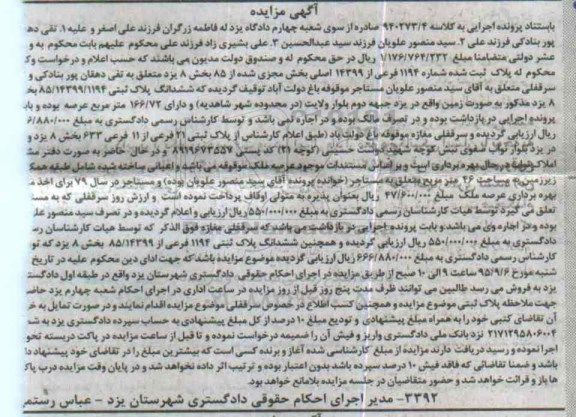 آگهی مزایده
باستناد پرونده اجرایی به کلاسه ۹۴۰۲۷۳/۴ صادره از سوی شعبه چهارم دادگاه یزد له فاطمه زرگران فرزند علی اصغر و علیه ۱. تقی دهقان
پور بنادکی فرزند علی ۲. سید منصور علویان فرزند سید عبدالحسین ۳. علی بشیری زاد فرزند علی محکوم علیهم بابت محکوم به و
عشر دولتی متضامنا مبلغ ۱/۱۷۶/۷۶۴/۲۳۲ ریال در حق محکوم له و صندوق دولت مدیون می باشند که حسب اعلام و درخواست وکیل
محکوم له پلاک ثبت شده شماره ۱۱۹۴ فرعی از ۱۴۳۹۹ اصلی بخش مجزی شده از ۸۵ بخش ۸ یزد متعلق به تقی دهقان پور بنادکی و
سرقفلی متعلق به آقای سید منصور علویان مستاجر موقوفه باغ دولت آباد توقیف گردیده که ششدانگ پلاک ثبتی ۸۵/۱۴۳۹۹/۱۱۹۴ بخش
۸ یزد مذکور به صورت زمین واقع در یزد جبهه دوم بلوار ولایت (در محدوده شهر شاهدیه) و دارای ۱۶۶/۷۲ متر مربع عرصه بوده و بابت
پرونده اجرایی در بازداشت بوده و در تصرف مالک بوده و در اجاره نمی باشد و توسط کارشناس رسمی دادگستری به مبلغ ۶۶۶/۸۸۰/۰۰۰
ریال ارزیابی گردیده و سرقفلی مغازه موقوفه باغ دولت باد (طبق اعلام کارشناس از پلاک ثبتی ۲۱ فرعی از ۱۱ فرعی ۶۳۳ بخش ۸ یزد و
در یزد بلوار نواب صفوی نبش کوچه شهید کوچه (۴) کد پستی ۸۹۱۹۶۷۳۵۵۷ و در حال حاضر به صورت دفتر مشاور
املاک نواب در حال بهره برداری است و بر اساس مستندات موجود عرصه ملک موقوفه می باشد و اعیانی ساخته شده شامل طبقه همکف
زیرزمین به مساحت ۴۶ متر مربع متعلق به مستاجر (خوانده پرونده آقای سید منصور علویان بوده) و مستاجر در سال ۷۹ برای اخذ
بهره برداری عرصه ملک مبلغ ۴۷/۶۰۰/۰۰۰ ریال بعنوان پذیره به متولی اوقاف پرداخت نموده است و ارزش روز سرقفلی که به مستاجر
تعلق می گیرد توسط هیات کارشناسان رسمی دادگستری به مبلغ ۵۵۰/۰۰۰/۰۰۰ ریال ارزیابی و اعلام گردیده و در تصرف سید منصور علویان
بوده و در اجاره وی می باشد و بابت پرونده اجرایی در بازداشت می باشد که سرقفلی مغازه فوق الذکر که توسط هیات کارشناسان رسمی
دادگستری به مبلغ ۵۵۰/۰۰۰/۰۰۰ ریال ارزیابی گردیده و همچنین ششدانگ پلاک ثبتی ۱۱۹۴ فرعی از ۸۵/۱۴۳۹۹ بخش ۸ یزد که توسط
کارشناس رسمی دادگستری به مبلغ ۶۶۶/۸۸۰/۰۰۰ ریال ارزیابی گردیده موضوع مزایده باشد که جهت ادای دین محکوم علیه در تاریخ
شنبه مورخ ۹۵/۹/۶ ساعت ۹ الی ۱۰ صبح از طریق مزایده در اجرای احکام حقوقی دادگستری شهرستان یزد واقع در طبقه اول دادگستری
یزد به فروش می رسد طالبین می توانند ظرف مدت پنج روز قبل از روز مزایده در ساعت اداری در اجرای احکام شعبه چهارم یزد حاضر
جهت ملاحظه پلاک ثبتی موضوع مزایده و همچنین کسب اطلاع در خصوص سرقفلی موضوع مزایده اقدام نمایند و در صورت تمایل به خرید
آن تقاضای کتبی خود را به همراه مبلغ پیشنهادی و تودیع مبلغ ۱۰ درصد از کل مبلغ پیشنهادی به حساب سپرده دادگستری یزد به شماره
۲۱۷۱۲۹۵۸۰۶۰۰۴ نزد بانک ملی دادگستری واریز و فیش آن را ضمیمه درخواست نموده و تا قبل از ساعت مزایده در پاکت دربسته تحویل
اجرا نموده و رسید دریافت دارند مزایده از مبلغ کارشناسی شده آغاز و برنده کسی است که بیشترین مبلغ را در تقاضای خود پیشنهاد داده
باشد و ضمنا تقاضاتی که فاقد فیش ۱۰ درصد سپرده باشد بدون اعتبار بوده و ترتیب اثر داده نخواهد شد و در پایان وقت مزایده درب پاکت
ها باز و قرائت خواهد شد و حضور متقاضیان در جلسه مزایده بلامانع خواهد بود.
۳۳۹۲- مدیر اجرای احکام حقوقی دادگستری شهرستان یزد - عباس رستمی